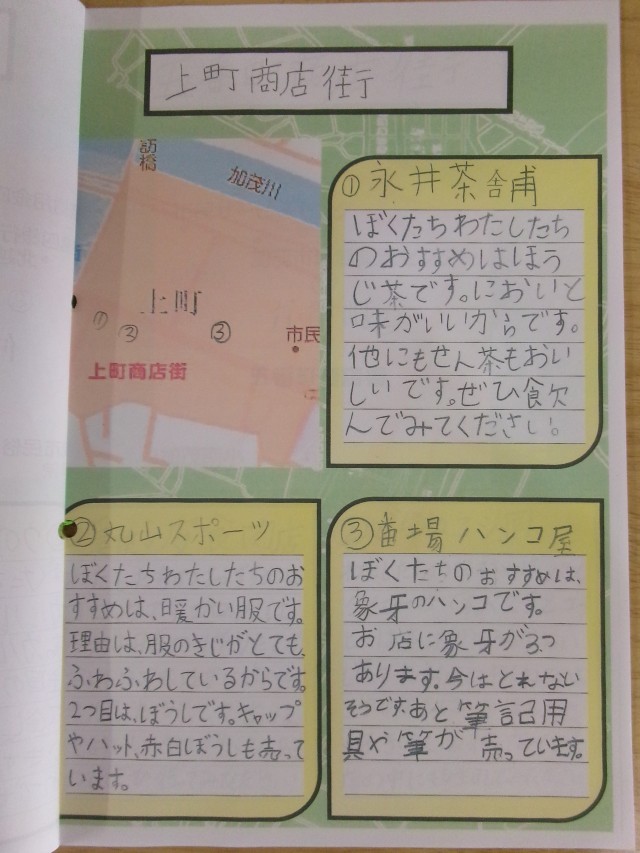 上町商店街
訪橋
加茂川
上町
① ② ③
市民
上町商店街
①永井茶舗
ぼくたちわたしたち
のおすすめはほう
じ茶です。においと
味がいいからです。
他にもせん茶もおい
しいです。ぜひ飲
んでみてください。
②丸山スポーツ
ぼくたちわたしたちのお
すすめは、暖かい服です。
理由は、服のきじがとても、
ふわふわしているからです。
2つ目は、ぼうしです。キャップ
やハット、赤白ぼうしも売って
います。
③番場ハンコ屋
ぼくたちのおすすめは、
象牙のハンコです。
お店に象牙が3つ
あります。今はとれない
そうです。あと筆記用
具や筆が売っています。